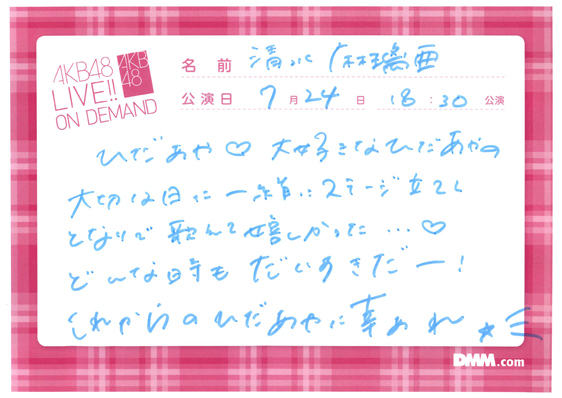 AKB48
LIVE!!
ON DEMAND
AKB
48
名前 清水麻璃亜
公演日 7月24日 18:30 公演
ひだあや♡ 大好きなひだあやの
大切な日に一緒にステージ立てて
となりで歌えて嬉しかった…♡
どんな時も だいすきだー!
これからのひだあやに幸あれ ★彡
DMM.com